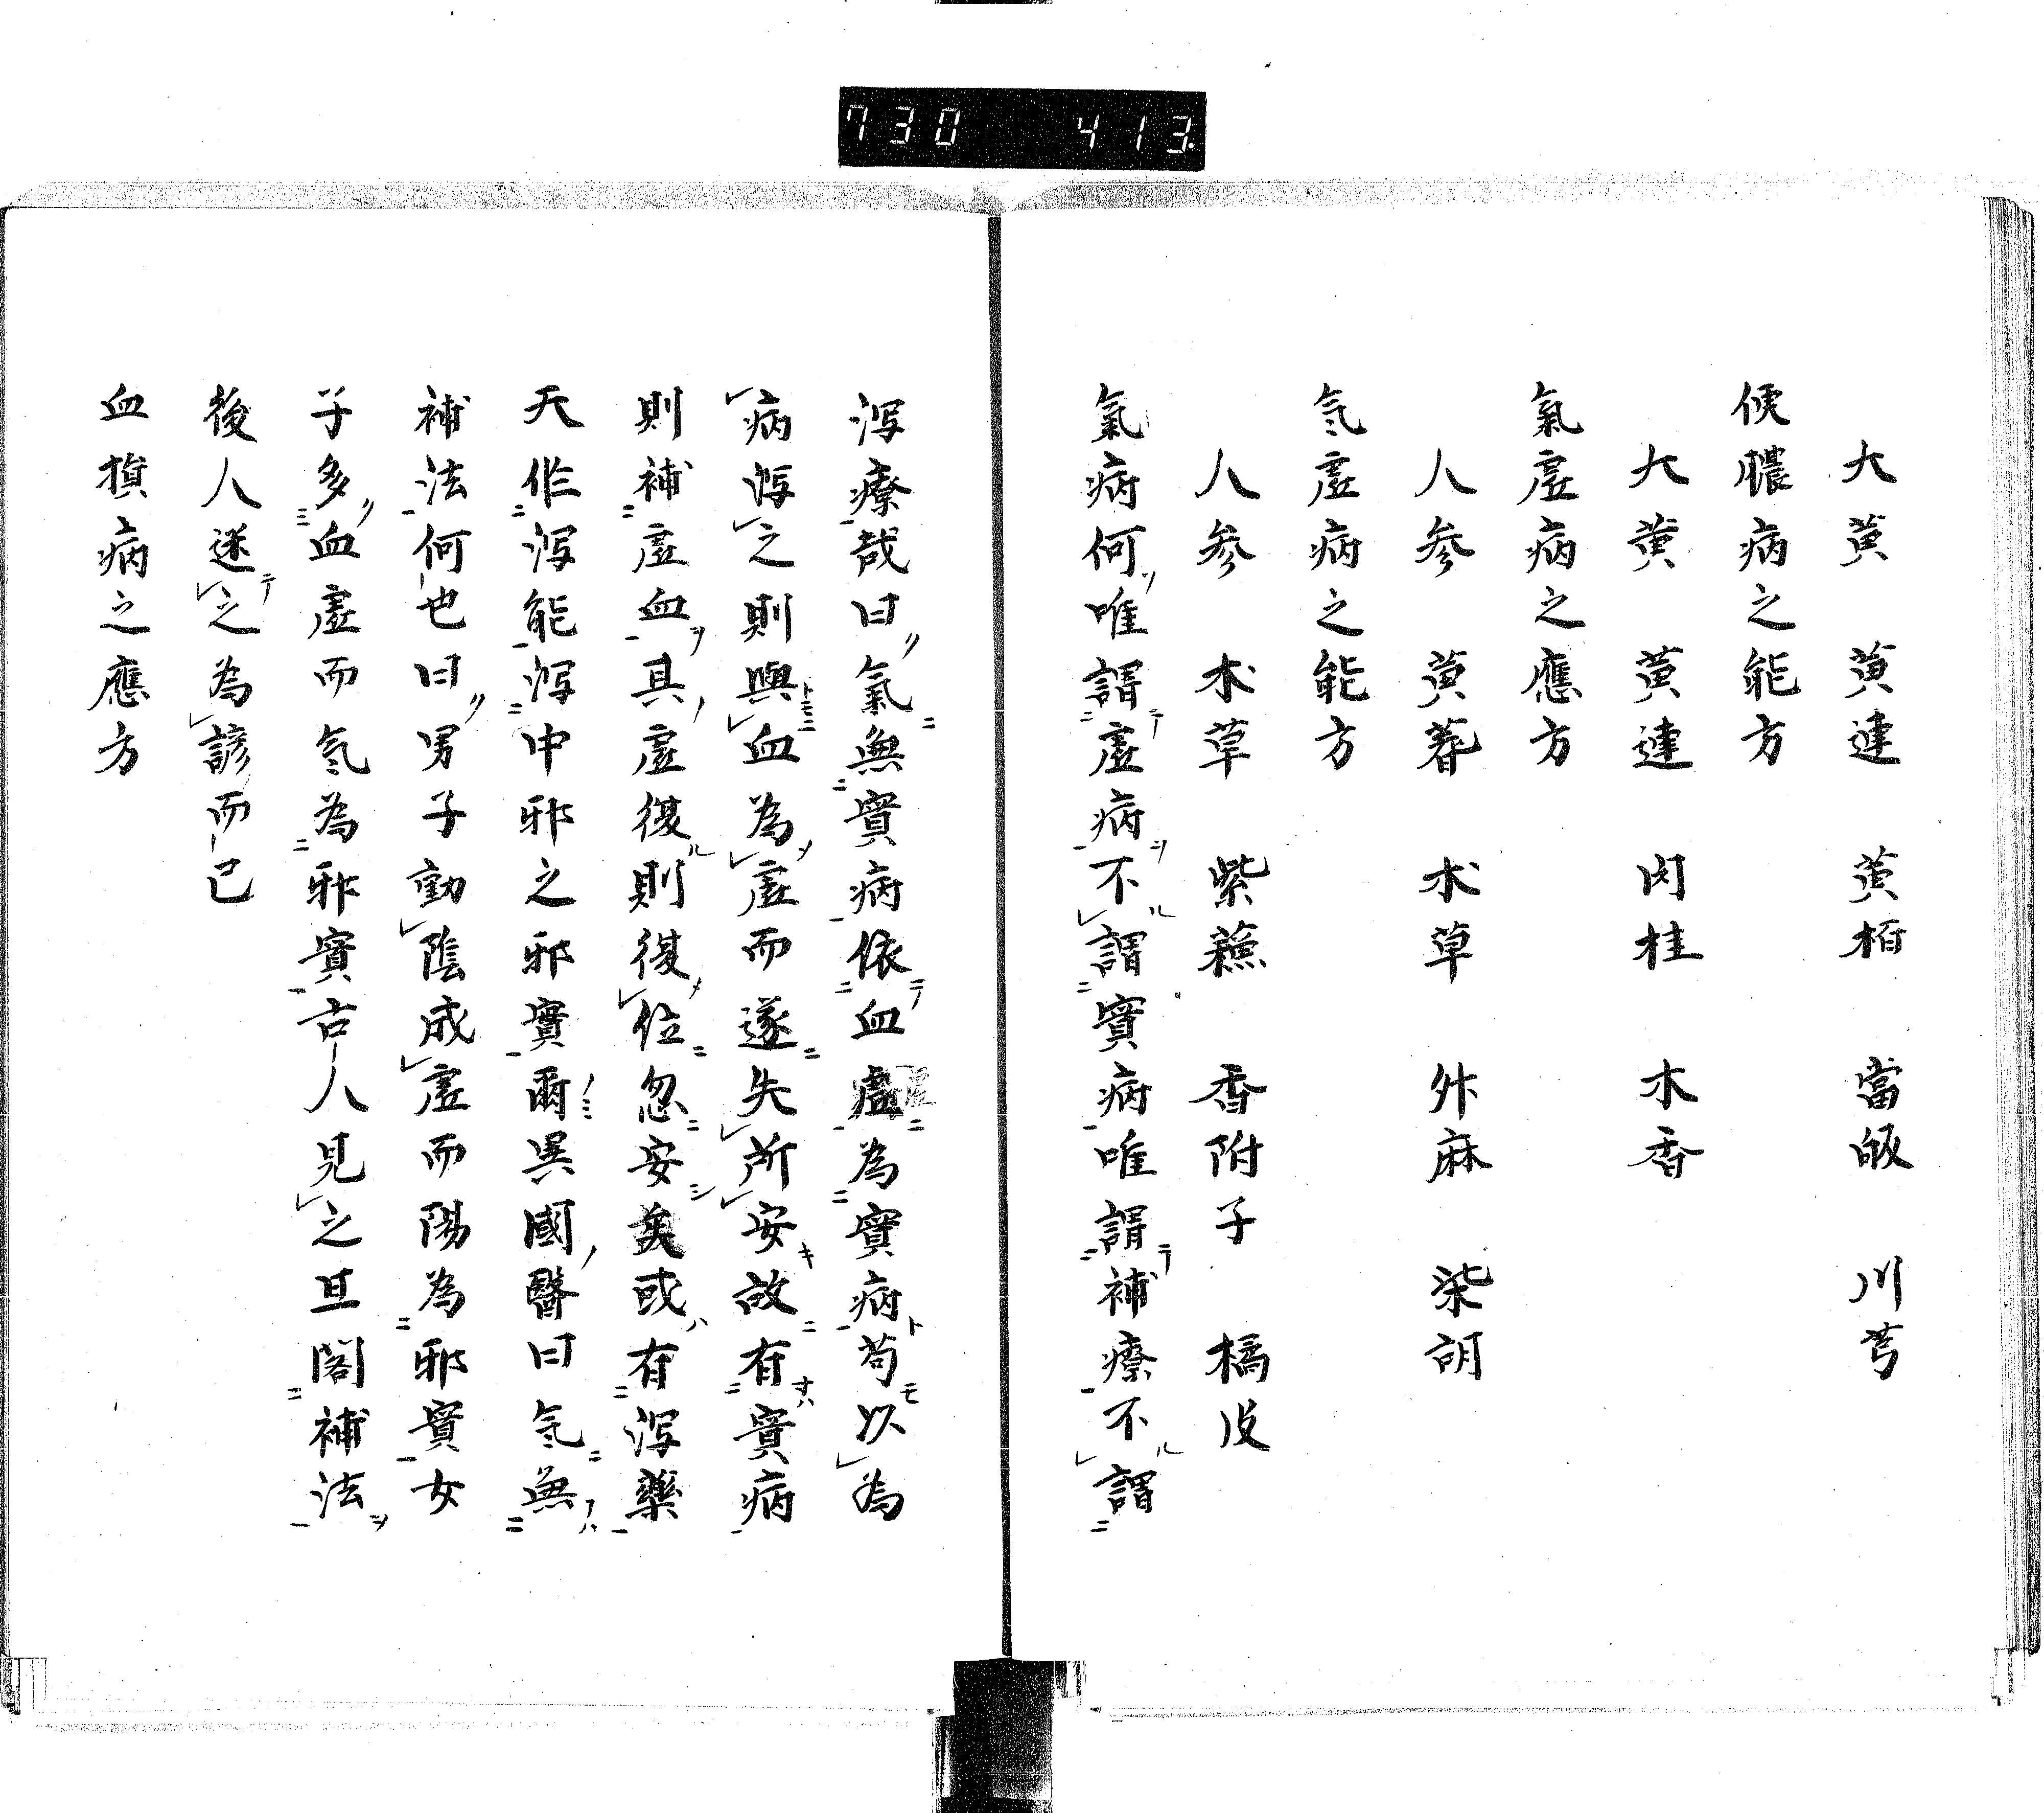 730 413
大黄 黄連 黄栢 當皈 川芎
便膿病之能方
大黄 黄連 肉桂 木香
氣虛病之應方
人参 黄蓍 木草 外麻 柴胡
気虛病之能方
人参 木草 紫蘓 香附子 橘皮
氣病何唯謂虛病不謂實病唯謂補療不謂
瀉療哉曰氣無實病依血虛為實病苟以為
病瀉之則與血為虛而遂失所安故有實病
則補虛血其虛復則復位忽安矣或有瀉藥
天作瀉能瀉中邪之邪實爾異國醫曰気無
補法何也曰男子動陰成虛而陽為邪實女
子多血虛而気為邪實古人見之且閣補法
後人迷之為諺而已
血損病之應方